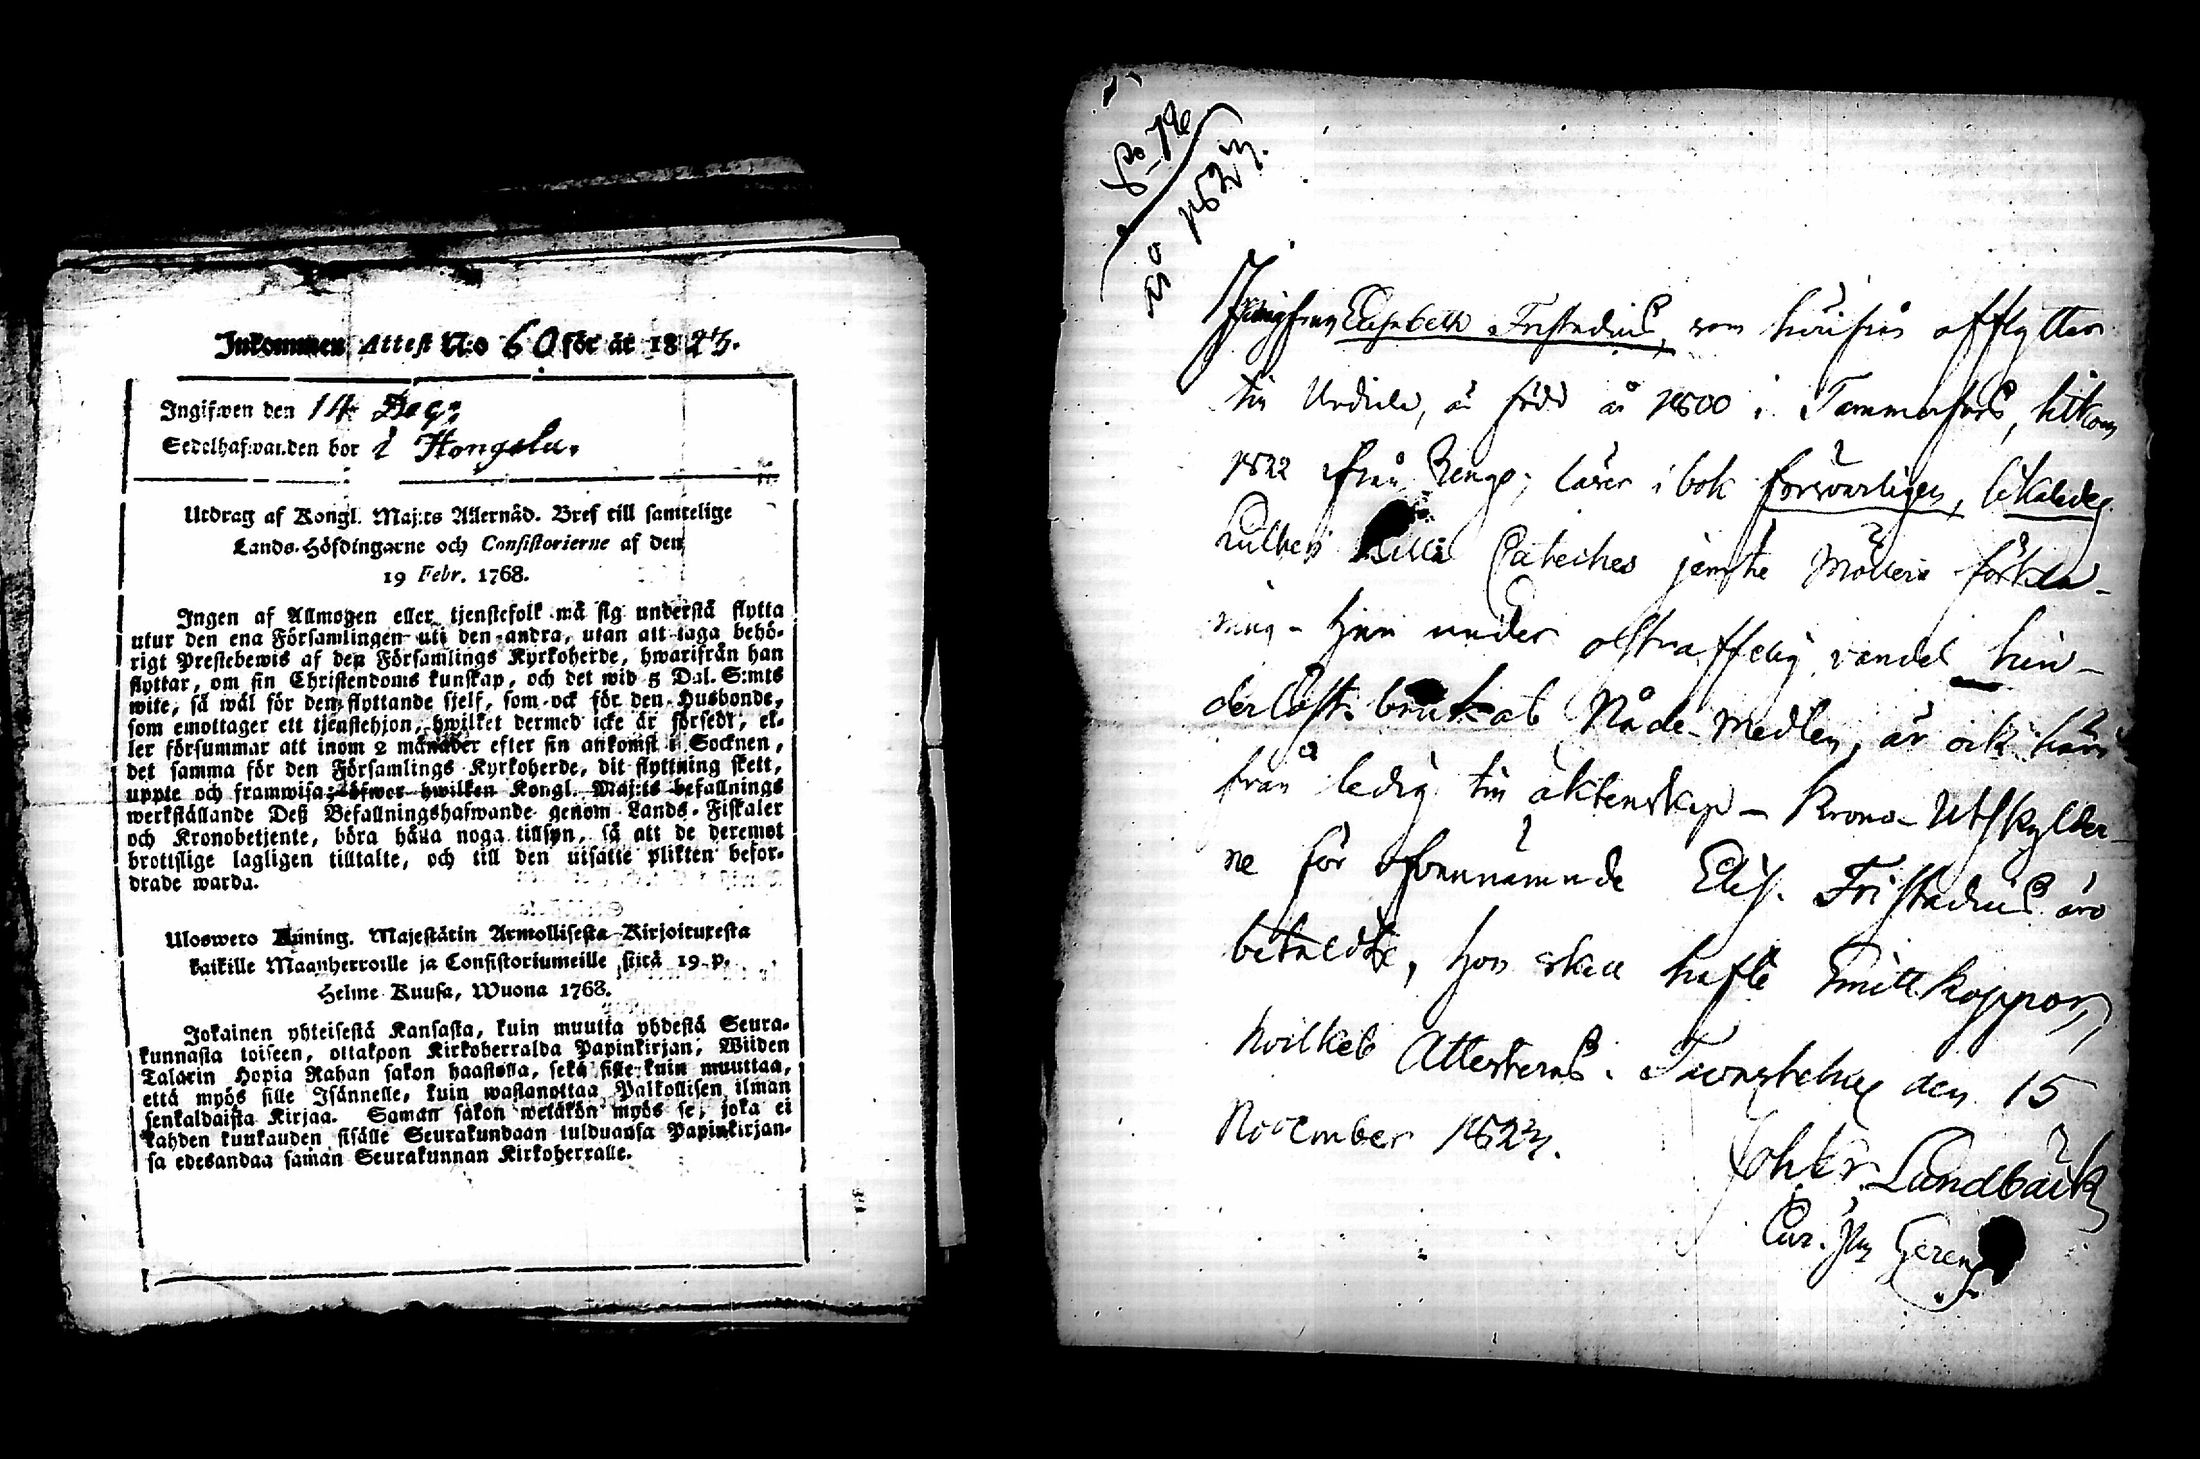 Inkommen Attest N:o 60 för år 1823.
Ingifwen den 14 Dec:
Sedelhafwanden bor i Hongola.
Utdrag af Kongl. Maj:ts Allernåd. Bref till samtelige
Lands-Höfdingarne och Consistorierne af den
19 Febr. 1768.
Ingen af Allmogen eller tjenstefolk må sig understå flytta
utur den ena Församlingen uti den andra, utan att taga behö-
rigt Prestebewis af den Församlings Kyrkoherde, hwarifrån han
flyttar, om sin Christendoms kunskap, och det wid 5 Dal. S:mts
wite, så wäl för den flyttande sjelf, som ock för den Husbonde,
som emottager ett tjenstehjon, hwilket dermed icke är försedt, el-
ler försummar att inom 2 månader efter sin ankomst i Socknen,
det samma för den Församlings Kyrkoherde, dit flyttning skett,
uppte och framwisa; öfwer hwilken Kongl. Maj:ts befallnings
werkställande Deß Befallningshafwande genom Lands-Fiskaler
och Kronobetjente, böra hålla noga tillsyn, så att de deremot
brottslige lagligen tilltalte, och till den utsatte plikten befor-
drade warda.
Ulosweto Kuning. Majestätin Armollisesta Kirjoituxesta
kaikille Maanherroille ja Consistoriumeille, siitä 19. p.
Helme Kuusa, Wuona 1768.
Jokainen yhteisestä Kansasta, kuin muutta yhdestä Seura-
kunnasta toiseen, ottakoon Kirkoherralda Papinkirjan, Wiiden
Talarin Hopia Rahan sakon haastolla, sekä sille kuin muuttaa,
että myös sille Isännelle, kuin wastanottaa Palkollisen ilman
senkaldaista Kirjaa. Saman sakon wetäkön myös se, joka ei
kahden kuukauden sisälle Seurakundaan tulduansa Papinkirjan-
sa edesandaa saman Seurakunnan Kirkoherralle.
1823.
Jungfrun Elisabeth Fristadius, som härifrån afflyttar
till Urdiala, är född år 1800 i Tammerfors, hitkom
1822 ifrån Rengo; läser i bok försvarligen, likaledes
Lutheri Lilla Cateches jemte Möllers förkla-
ring - Hon under ostraffelig vandel hin-
derlöst brukat Nåde-Medlen, är ock häri-
från ledig till äktenskap - Krono-Utskylder-
ne för ofvannämnde Elis. Fristadius äro
betaldte, Hon skall haft Smittkoppor,
hvilket Attesteras. Tavastehus den 15
November 1823.
Joh. Er. Lundbäck